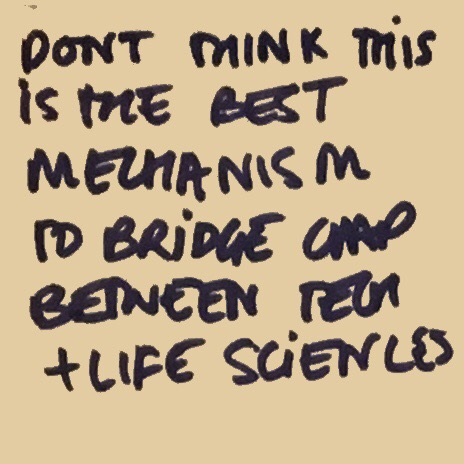 DONT THINK THIS
IS THE BEST
MECHANISM
TO BRIDGE GAP
BETWEEN TECH
+ LIFE SCIENCES